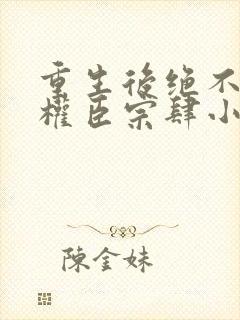 重生後绝不
權臣宗肆小
陳金妹